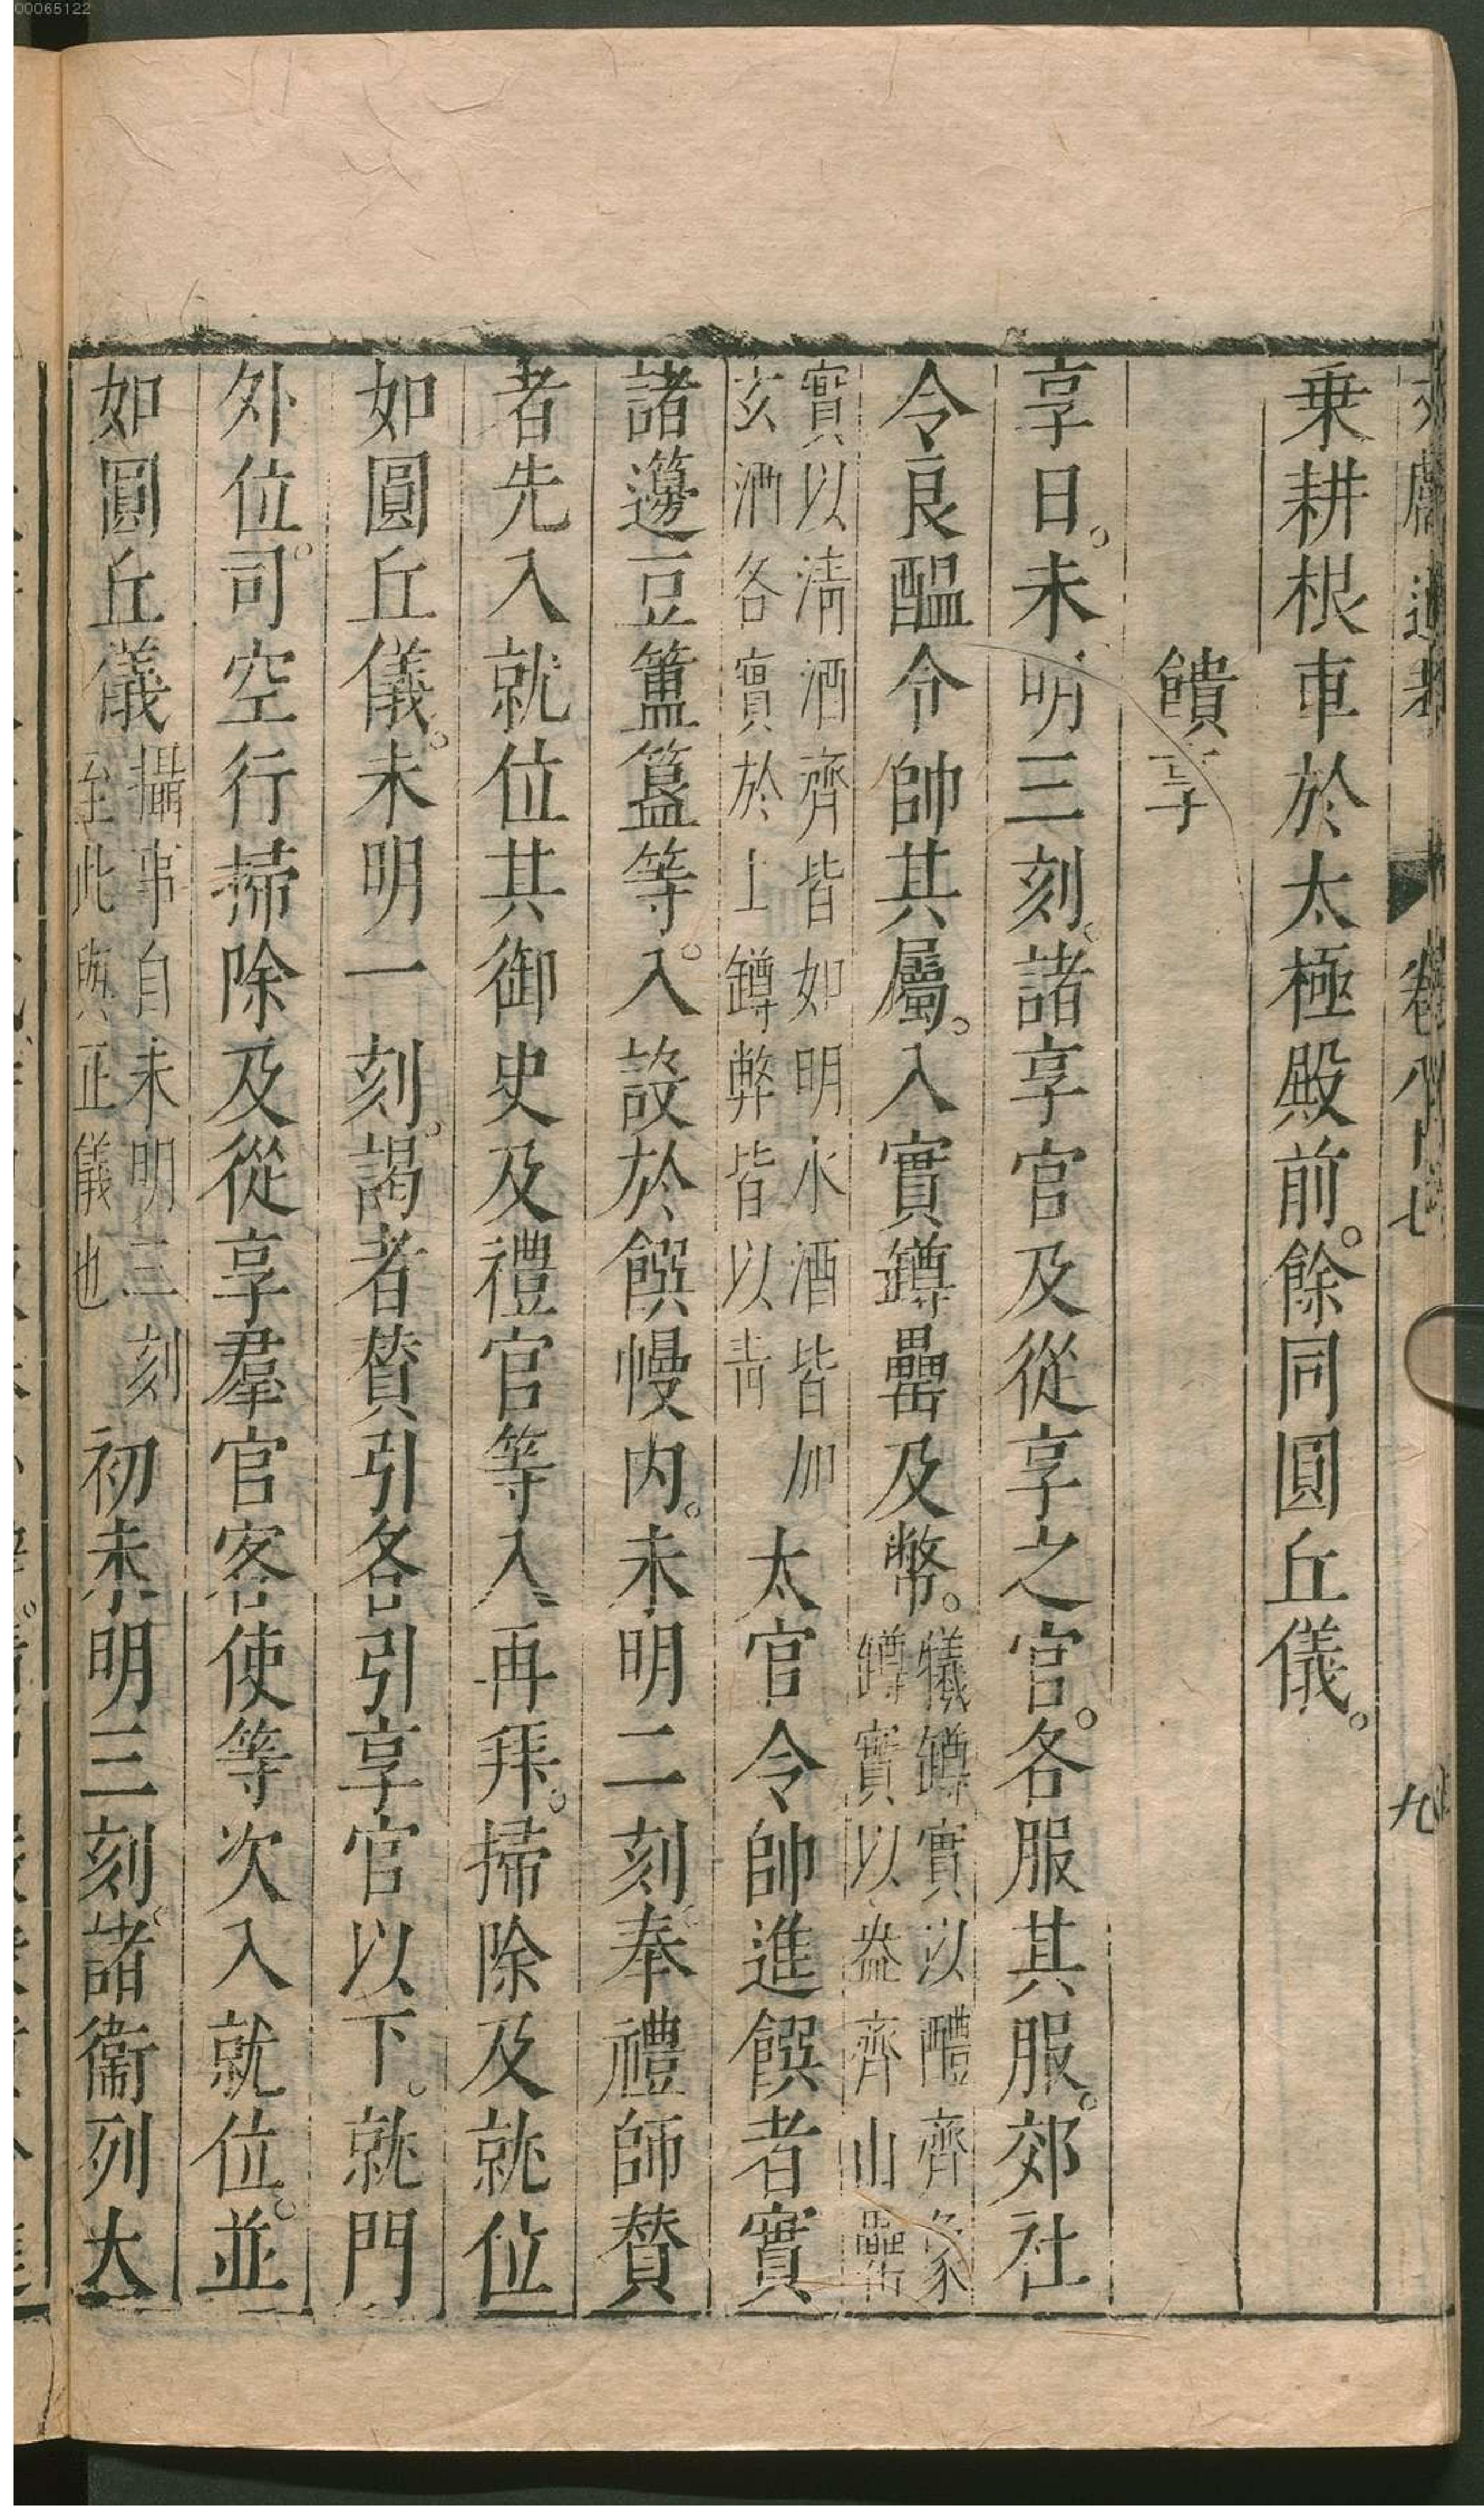 00065122
文獻通考 卷八十七 九
乗耕根車於太極殿前。餘同圓丘儀。
饋享
享日。未明三刻。諸享官及從享之官。各服其服。郊社
令良醞令帥其屬。入實罇罍及幣。犧罇實以醴齊象
罇實以盎齊山罍
實以清酒齊皆如明水酒皆加
玄酒各實於上罇弊皆以青
太官令帥進饌者實
諸籩豆簠簋等。入設於饌幔内。未明二刻。奉禮師賛
者先入就位其御史及禮官等入再拜。掃除及就位
如圓丘儀。未明一刻。謁者賛引各引享官以下。就門
外位。司空行掃除及從享羣官客使等次入就位。並
如圓丘儀攝事自未明三刻
至此與正儀也
初未明三刻。諸衞列大